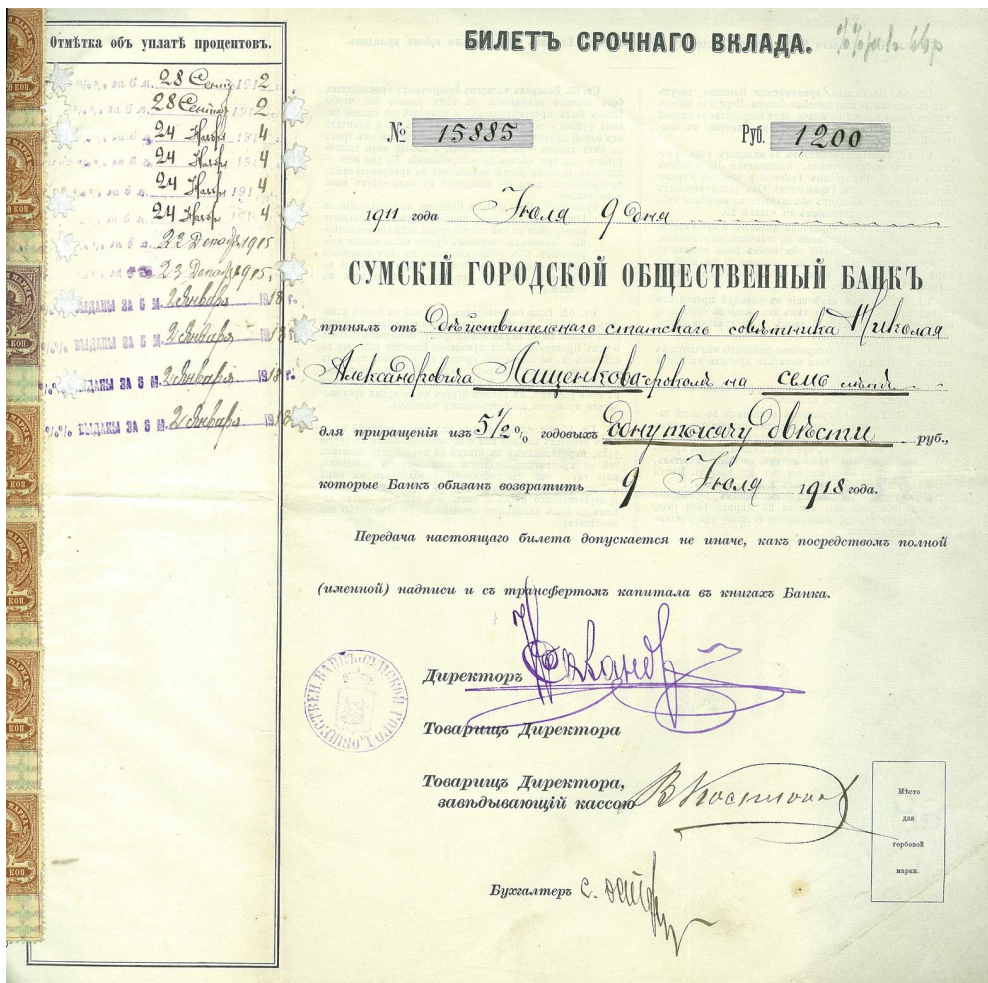 Отмѣтка объ уплатѣ процентовъ.
28 Сент 1912
28 Сентяб 2
24 Нояб 4
24 Нояб 4
24 Нояб 1914
24 Нояб 4
22 Декаб 1915
23 Декаб 1915
ВЫДАНЫ ЗА 6 М. 2 Января 1918 г.
%% ВЫДАНЫ ЗА 6 М. 2 Января 1918
ВЫДАНЫ ЗА 6 М. 2 Января 1918 г.
%% ВЫДАНЫ ЗА 6 М. 2 Января 1918
БИЛЕТЪ СРОЧНАГО ВКЛАДА.
№ 15885 Руб. 1200
1911 года Іюля 9 дня
СУМСКІЙ ГОРОДСКОЙ ОБЩЕСТВЕННЫЙ БАНКЪ
принялъ отъ Дѣйствительнаго статскаго совѣтника Николая
Александровича Лащенкова срокомъ на семь лѣтъ
для приращенія изъ 5 1/2 % годовыхъ Одну тысячу двѣсти руб.,
которые Банкъ обязанъ возвратить 9 Іюля 1918 года.
Передача настоящаго билета допускается не иначе, какъ посредствомъ полной
(именной) надписи и съ трансфертомъ капитала въ книгахъ Банка.
Директоръ
СУМСКОЙ ГОРОД. ОБЩЕСТВЕН. БАНКЪ
Товарищъ Директора
Товарищъ Директора,
завѣдывающій кассою
Мѣсто
для
гербовой
марки.
Бухгалтеръ